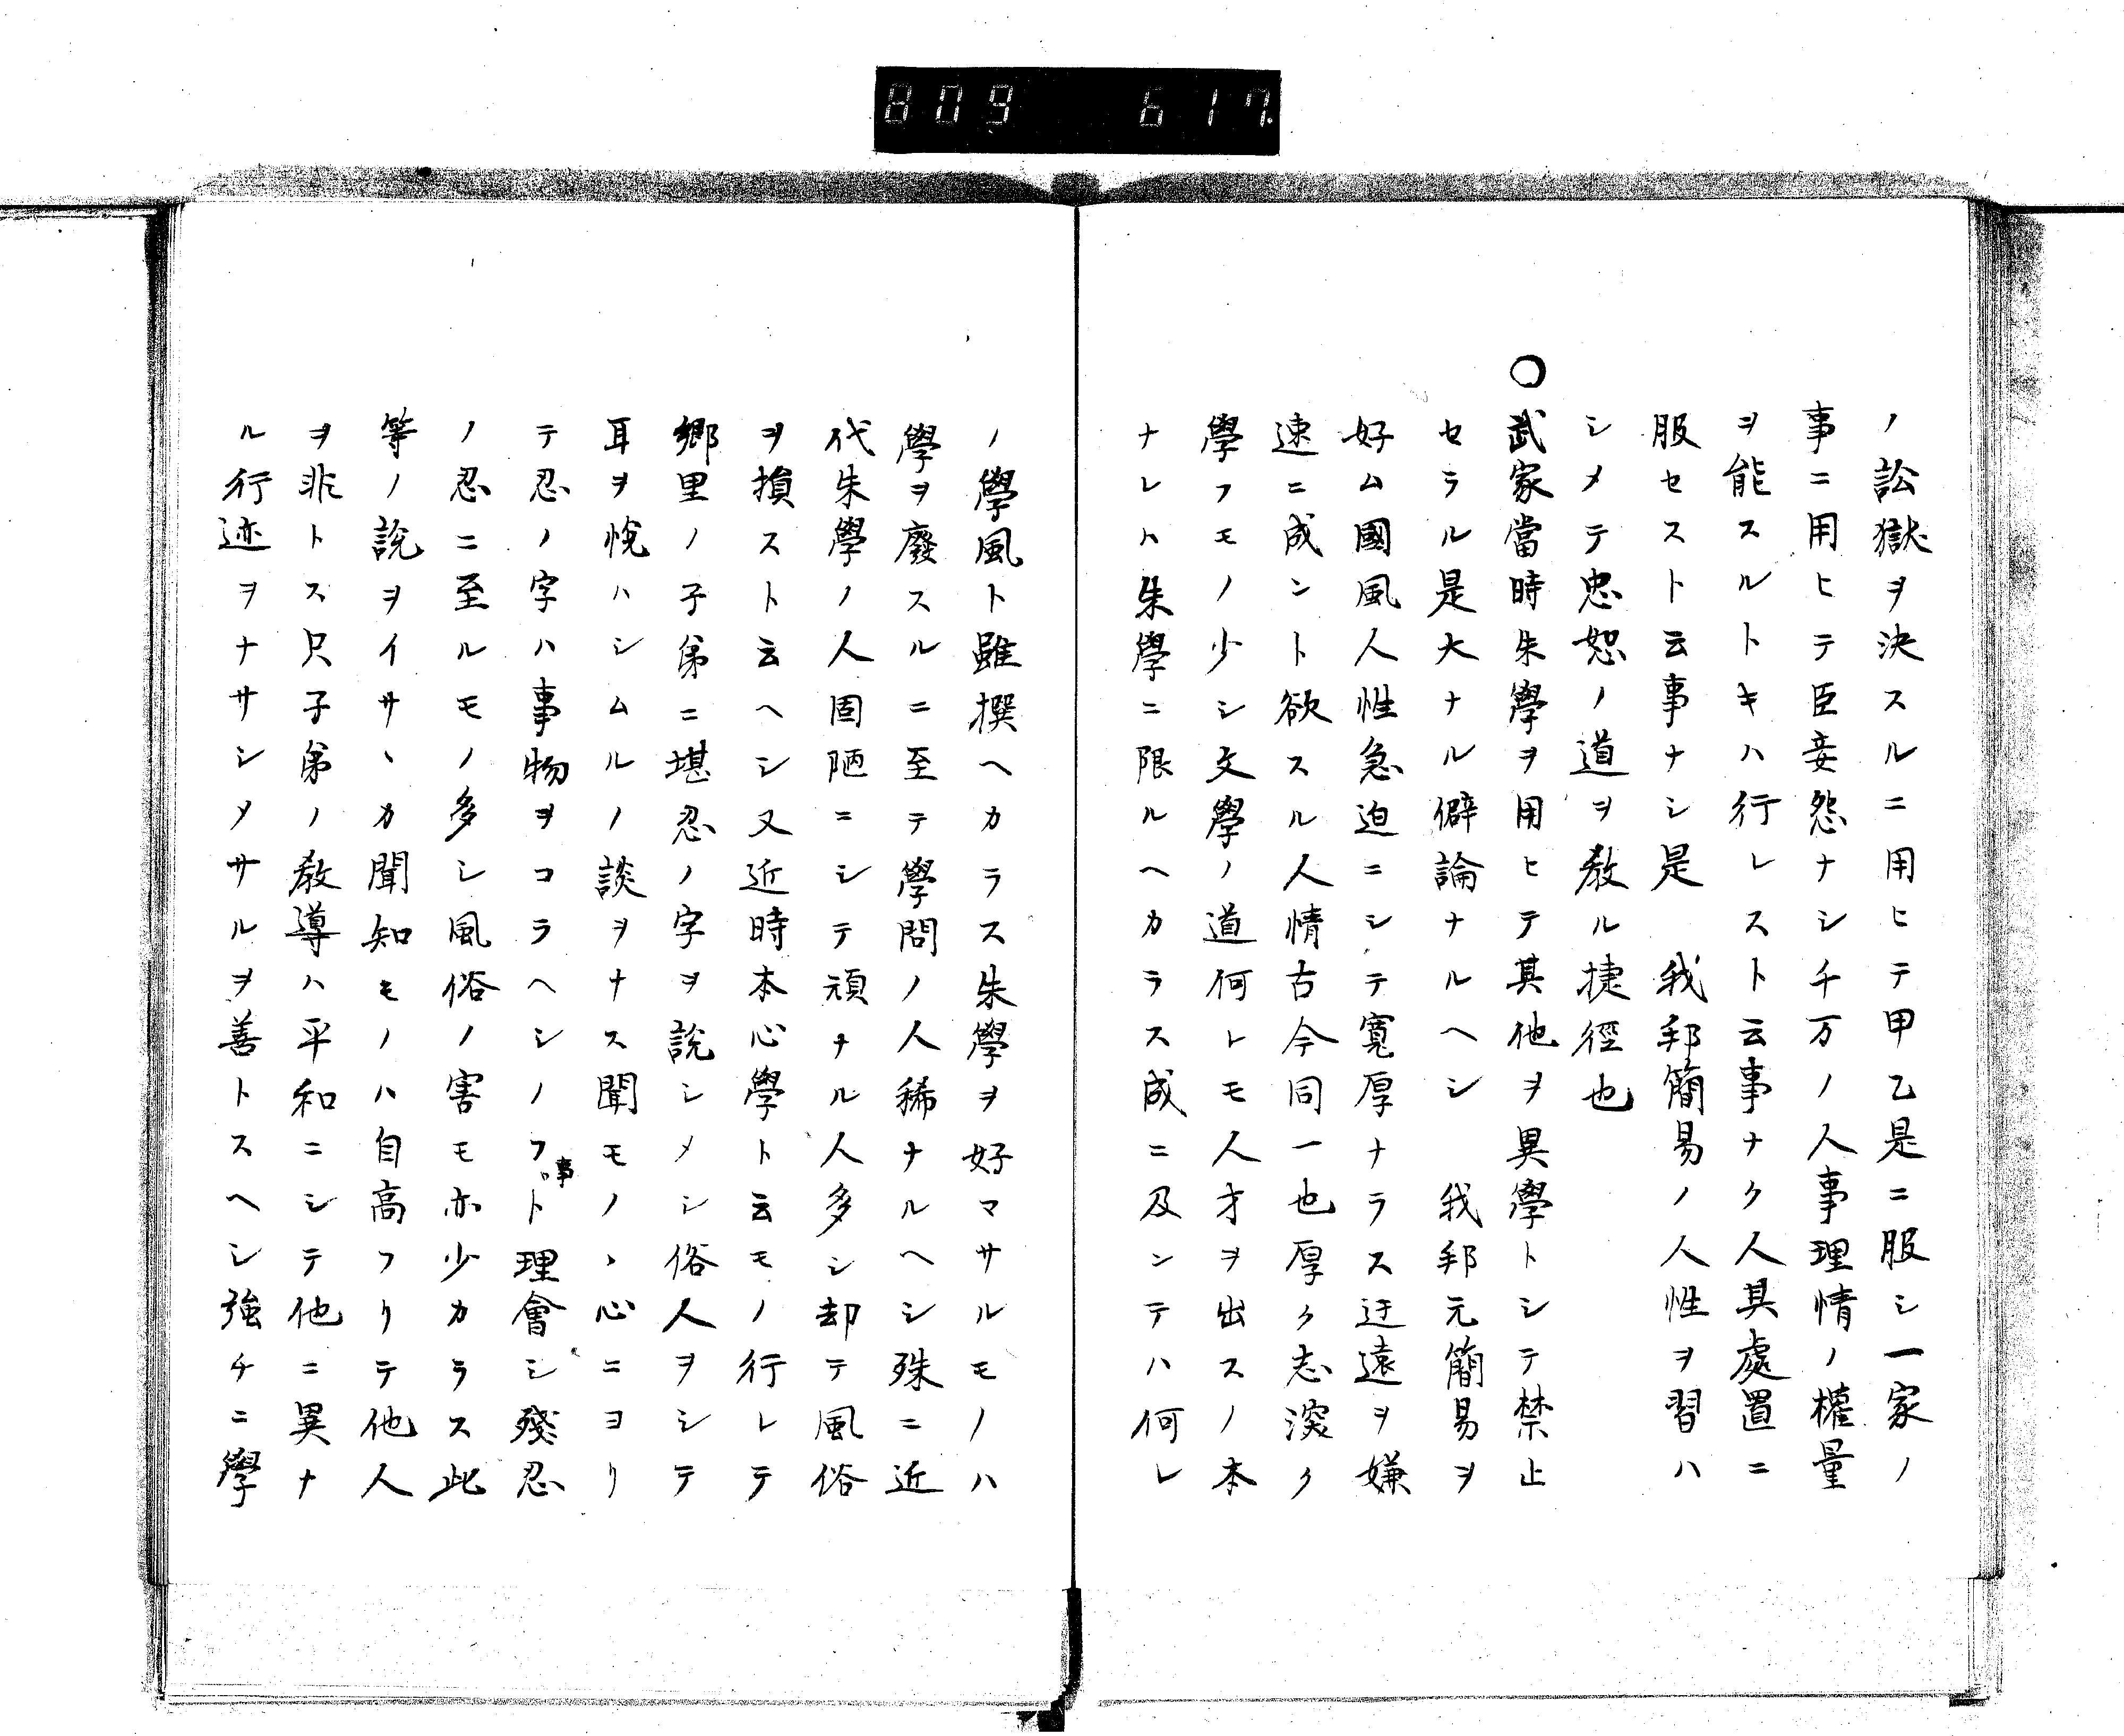 809 617.
ノ訟獄ヲ決スルニ用ヒテ甲乙是ニ服シ一家ノ
事ニ用ヒテ臣妾怨ナシ千万ノ人事理情ノ權量
ヲ能スルトキハ行レスト云事ナク人其處置ニ
服セスト云事ナシ是　我邦簡易ノ人性ヲ習ハ
シメテ忠恕ノ道ヲ教ル捷徑也
〇武家當時朱學ヲ用ヒテ其他ヲ異學トシテ禁止
セラル是大ナル僻論ナルヘシ　我邦元簡易ヲ
好ム國風人性急迫ニシテ寛厚ナラス迂遠ヲ嫌
速ニ成ント欲スル人情古今同一也厚ク志深ク
學フモノ少シ文學ノ道何レモ人才ヲ出スノ本
ナレハ朱學ニ限ルヘカラス成ニ及ンテハ何レ
ノ學風ト雖撰ヘカラス朱學ヲ好マサルモノハ
學ヲ廢スルニ至テ學問ノ人稀ナルヘシ殊ニ近
代朱學ノ人固陋ニシテ頑ナル人多シ却テ風俗
ヲ損ストモ云ヘシ又近時本心學ト云モノ行レテ
郷里ノ子弟ニ堪忍ノ字ヲ説シメシ俗人ヲシテ
耳ヲ悅ハシムルノ談ヲナス聞モノヽ心ニヨリ
テ忍ノ字ハ事物ヲコラヘシノフ事ト理會シ殘忍
ノ忍ニ至ルモノ多シ風俗ノ害モ亦少カラス此
等ノ說ヲイサヽカ聞知モノハ自高フリテ他人
ヲ非トス只子弟ノ教導ハ平和ニシテ他ニ異ナ
ル行迹ヲナサシメサルヲ善トスヘシ強チニ學